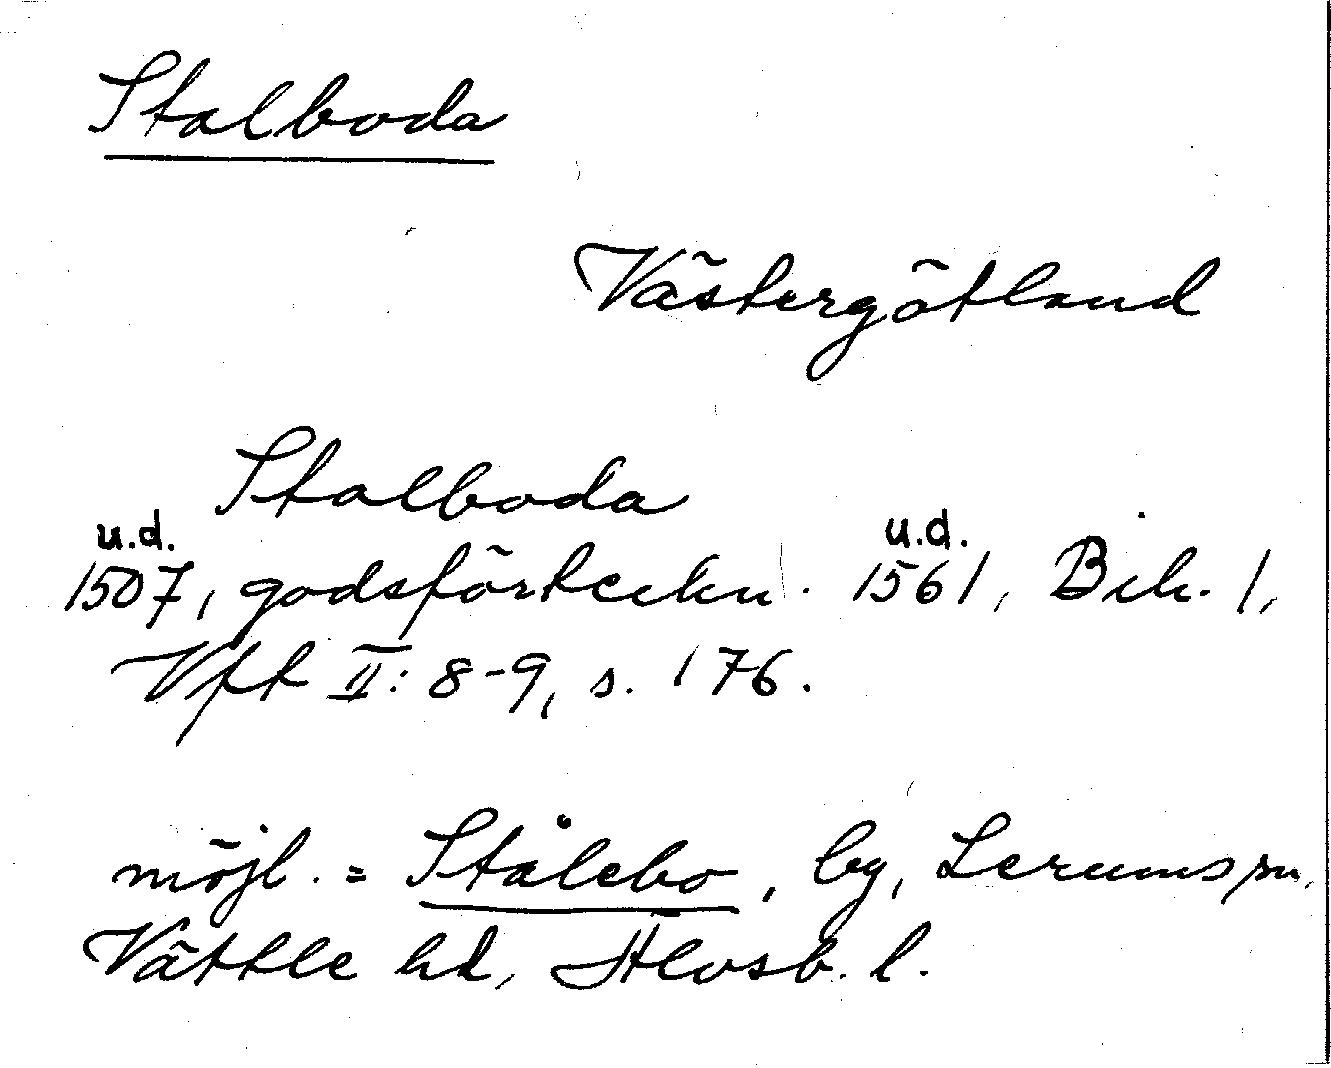 Stalboda
Västergötland
Stalboda
u.d. u.d.
1507, godsförteckn. 1561, Bih. 1,
Vft II: 8-9, s. 176.
möjl. = Stålebo, by, Lerums sn,
Vättle hd, Älvsb. l.